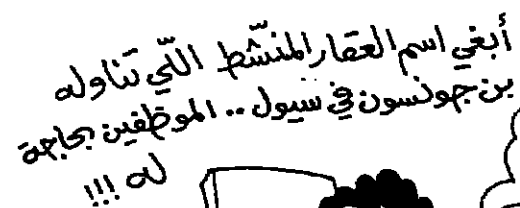 أبغي اسم العقار المنشّط اللّي تناوله
بن جونسون في سيول .. الموظفين بحاجة
له !!!